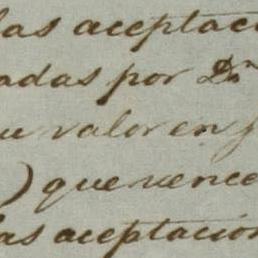 las aceptaci
adas por Dn
u valor en
) que vence
as aceptacion